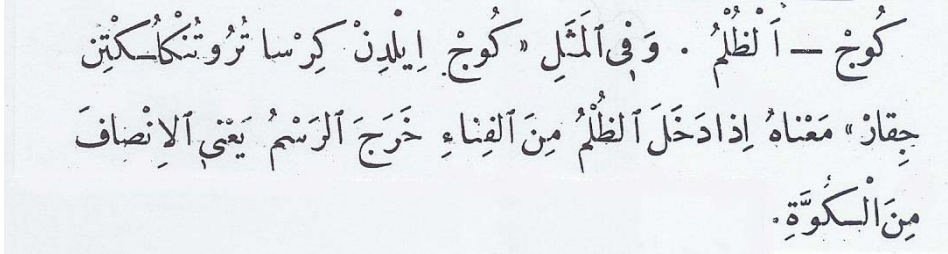 كُوجْ — اَلْظُلْمُ . وَفِى ٱلْمَثَلِ « كُوجْ اِيلْدِنْ كِرْسا تُرُو تُنْكْلُكْتِنْ
جِقارْ » مَعْناهُ اِذا دَخَلَ ٱلظُلْمُ مِنَ ٱلفِناءِ خَرَجَ ٱلرَسْمُ يَعْنِى ٱلاِنْصافَ
مِنَ ٱلْكُوَّةِ.